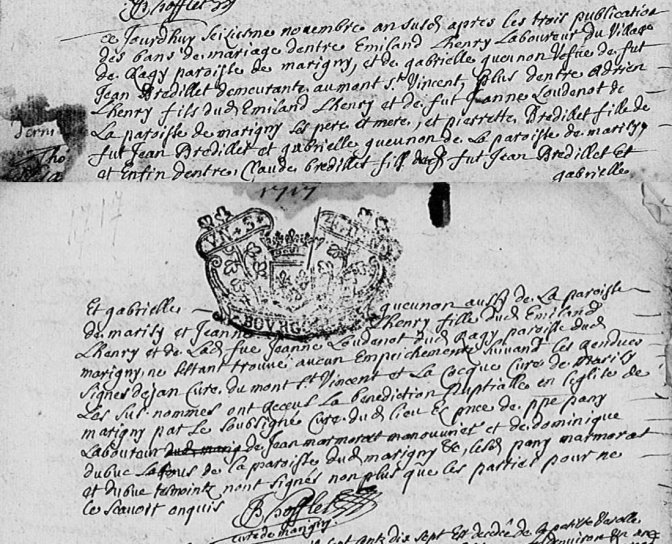 B. Shofflet
Ce Jourdhuy seiziesme novembre an susd apres les trois publication
des bans de mariage dentre Emiland Lhenry Laboureur du Village
de Ragy paroiste de marigny, et de gabrielle queunon Vefve de fut
Jean Bredillet demeurante au mont St Vincent, Plus dentre Adrien
Lhenry fils dud Emiland Lhenry et de fut Jeanne Loudenot de
La paroiste de marigny les pere et mere, et pierrette Bredillet fille de
fut Jean Bredillet et gabrielle queunon de La paroiste de marilly
et Enfin dentre Claude bredillet fils dud fut Jean Bredillet Et
gabrielle
1717
1717
Et gabrielle queunon aussy de La paroiste
de marilly et Jeanne Lhenry fille dud Emiland
Lhenry et de Lad fue Jeanne Loudenot dud Ragy paroiste dud
marigny, ne sestant trouvé aucun Empeichement suivant les
signes dejan Cure du mont St Vincent et La Cocque Cure de Marilly
Les sus nommes ont receus La benediction Nuptialle en leglise de
marigny par Le soubsigne Cure dud lieu En pnce de ppe pany
Laboureur de Jean marmorat manouvrier et de dominique
dubue de la paroiste dud marigny &c, lesd pany marmorat
et dubue temoints nont signés non plus que les parties pour ne
le scavoir enquis
B. Shofflet
cure de marigny
sept cent dix sept Est decedé